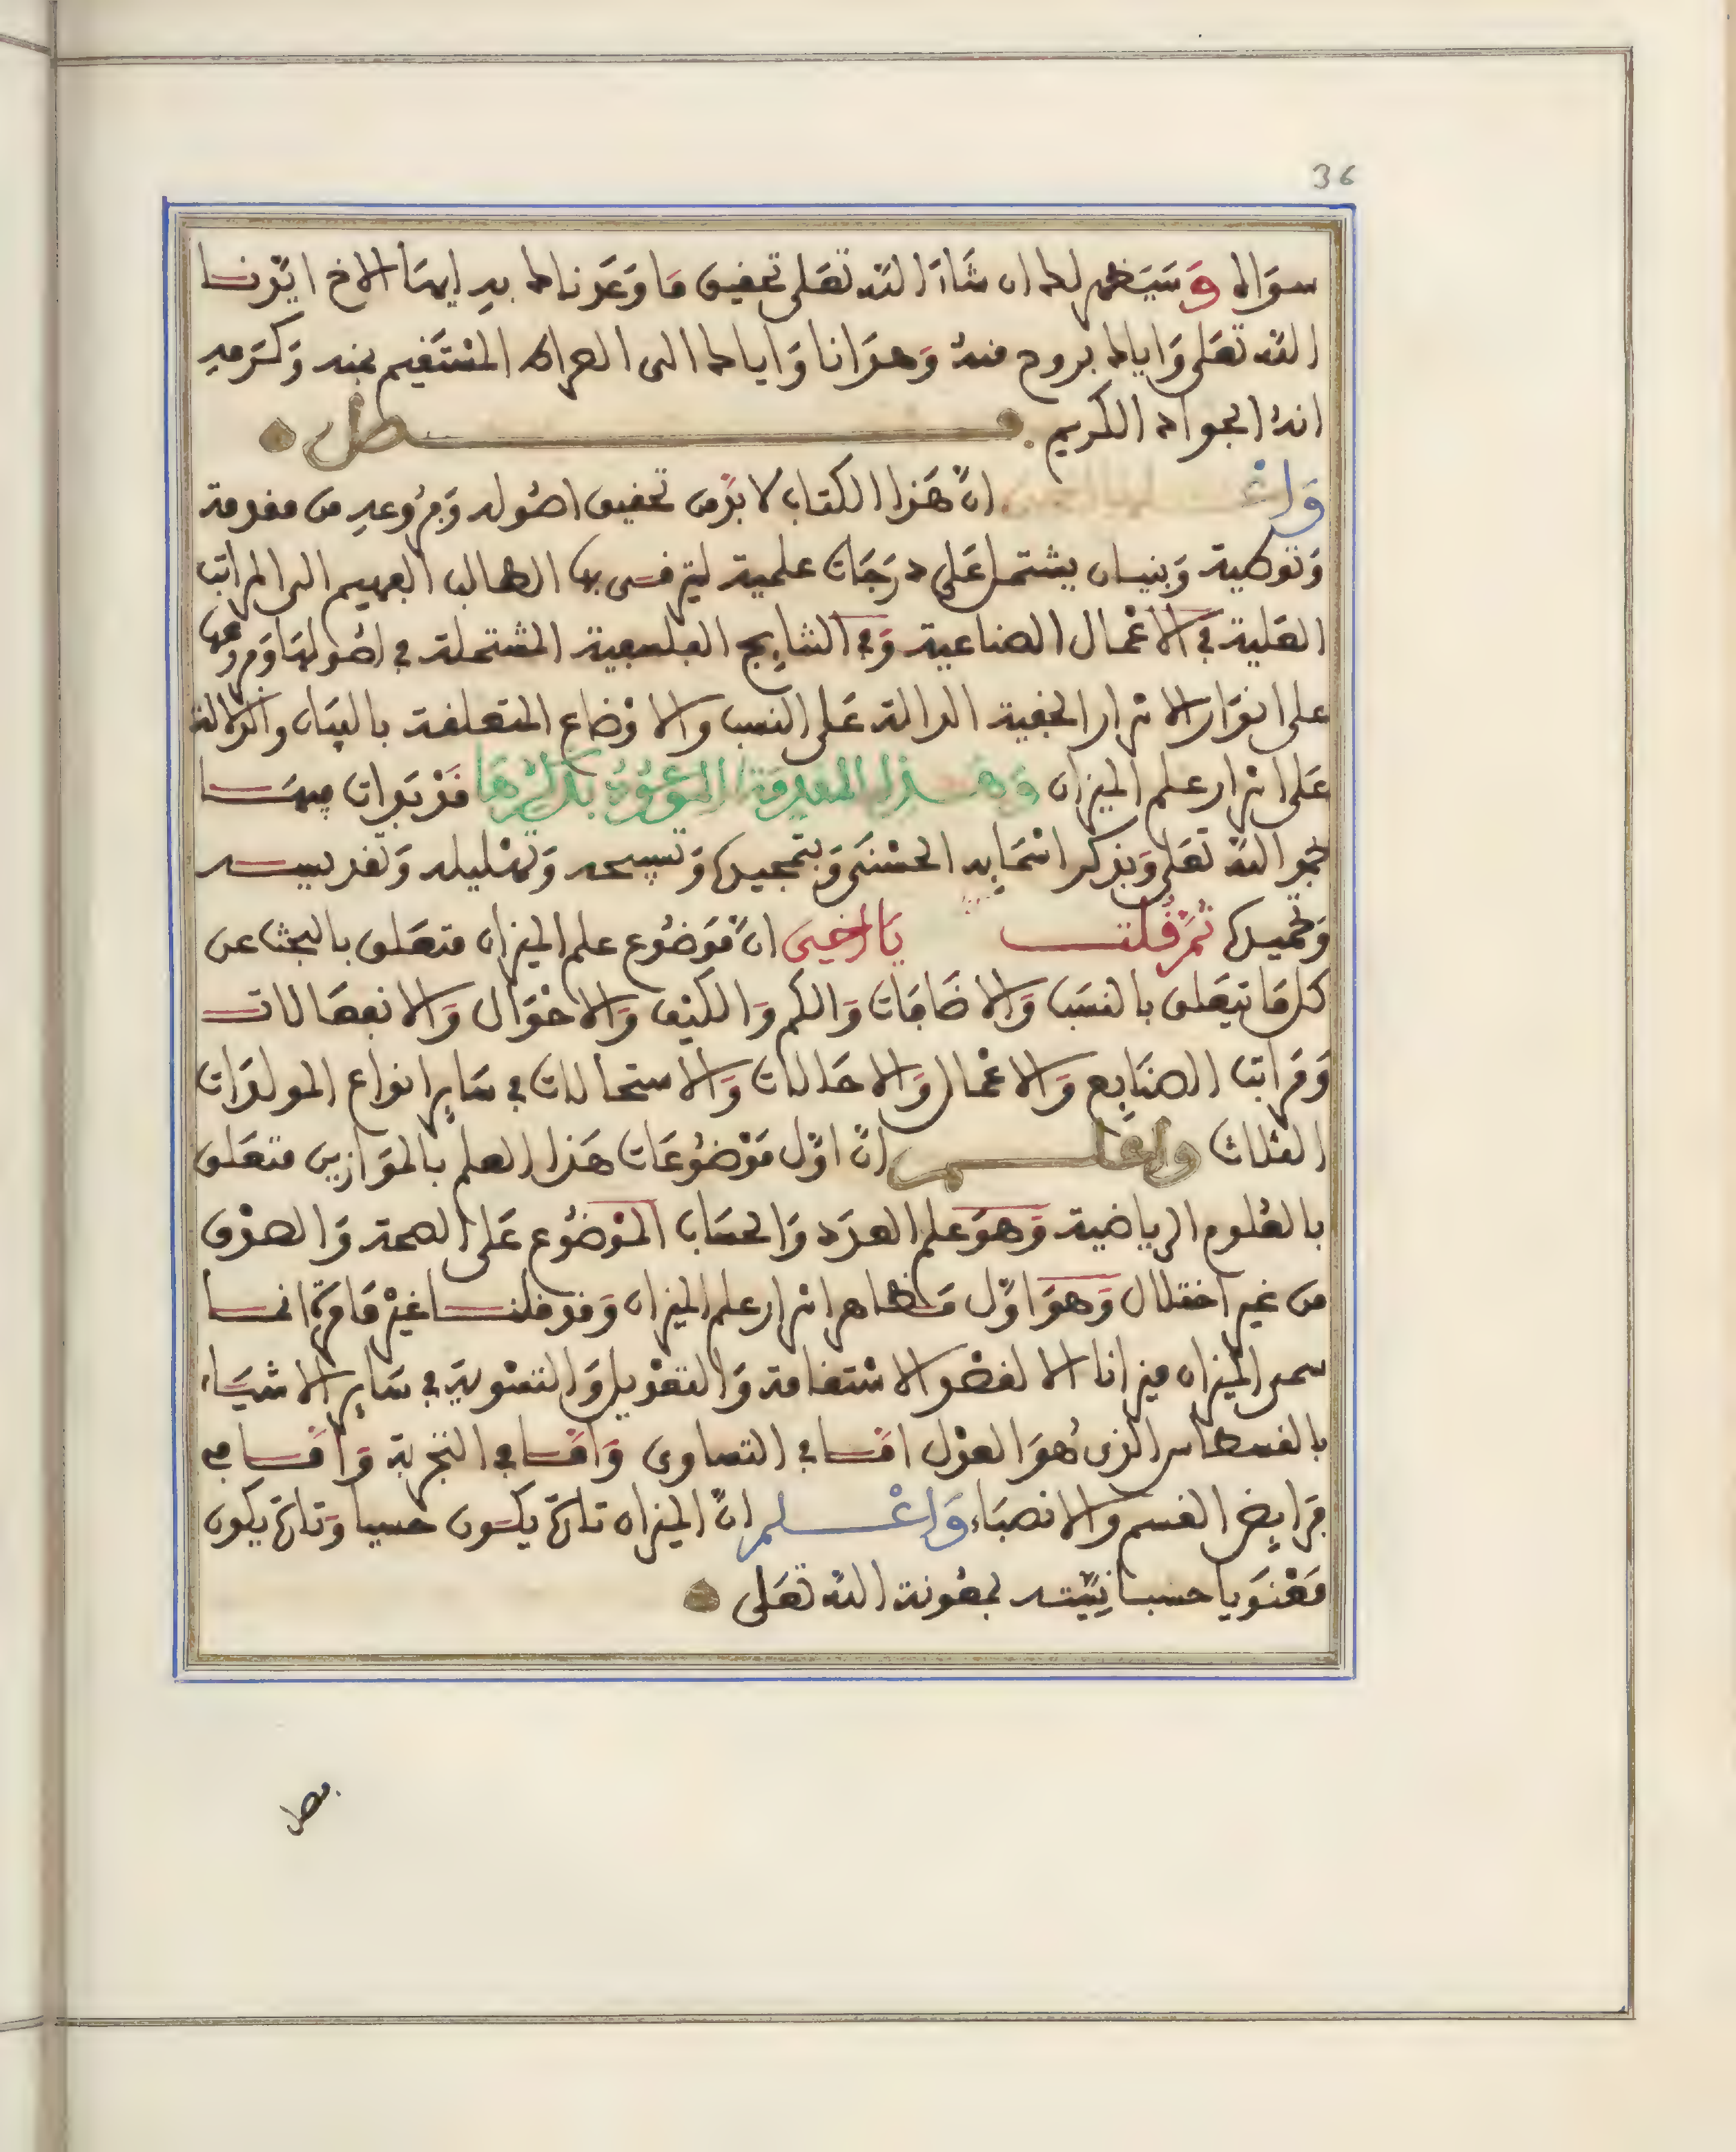 36
سواك وسيظهر لك ان شاء الله تعلى تحقيق ما وعدناك به ايها الاخ ايدنا
الله تعلى واياك بروح منه وهدانا واياك الى الصراط المستقيم بمنه وكرمه
انه الجواد الكريم . فصل
واعلم يا اخي ان هذا الكتاب لا بد من تحقيق اصوله وفروعه من مقدمة
وتوطية وبنيان يشتمل على درجات علمية ليترقى بها الطالب الفهيم الى المراتب
العلية في الاعمال الصناعية وفي النتايج الفلسفية المشتملة في اصولها وفروعها
على انوار الاسرار الخفية الدالة على النسب والاوضاع المتعلقة بالبيان والدلالة
على اسرار علم الميزان وهذا المقدمة الموعود بذكرها قد بدات فيها
بحمد الله تعلى وبذكر اسمايه الحسنى وبتمجيده وتسبيحه وتهليله وتقديسه
وتحميده ثم قلت يا اخي ان موضوع علم الميزان متعلق بالبحث عن
كل ما يتعلق بالنسب والاضافات والكم والكيف والاحوال والانفعالات
ومراتب الصنايع والاعمال والاحالات والاستحالات في ساير انواع المولدات
الثلاث واعلم ان اول موضوعات هذا العلم بالموازين متعلق
بالعلوم الرياضية وهو علم العدد والحساب الموضوع على الصحة والصدق
من غير اختلال وهو اول مظاهر اسرار علم الميزان وقد قلنا غير ما مرة انما
سمى الميزان ميزانا الا لقصد الاستقامة والتعديل والتسوية في ساير الاشياء
بالقسطاس الذي هو العدل اما في التساوى واما في التجزية واما في
فرايض القسم والانصباء واعلم ان الميزان تارة يكون حسيا وتارة يكون
معنويا حسبما نبينه بمعونة الله تعلى
فصل